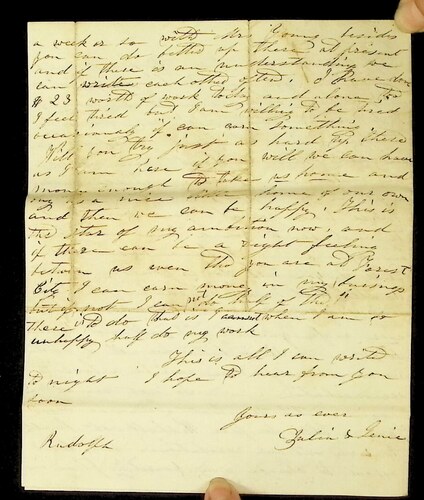 a week or so with Mr besides
you can do better up there at present
and if there is an understanding we
can write each other often. I have done
$23 worth of work today and alone to
I feel tired but I am willing to be tired
occasionaly if I can earn something.
Will you try just as hard up there
as I am here if you will we can have
money enough to take us home and
a nice some of our own
and then we can be happy. This is
the star of my ambition now, and
if there can be a right feeling
between us even tho you are at Forest
City I can earn money in my buisness
but if not I can not do half of the
there to do that is I cannot when I am so
unhappy half do my work
This is all I can write
to night I hope to hear from you
soon
Yours as ever
Rudolph